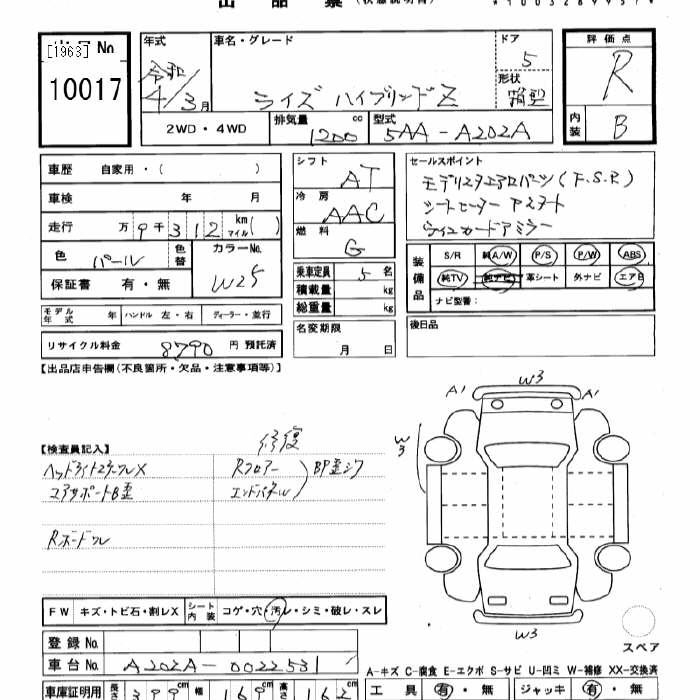 出品票
[1963]
出品 No
10017
年式
令和
4/3月
車名・グレード
ライズ ハイブリッドZ
ドア
5
形状
箱型
評価点
R
内装
B
2WD・4WD
排気量 1200 cc
型式 5AA-A202A
車歴 自家用・( )
車検 年 月
走行 万9千312 km マイル( )
色 パール 色替
カラーNo. W25
保証書 有・無
モデル年式 年 ハンドル 左・右 ディーラー・並行
リサイクル料金 8790 円 預託済
シフト
AT
冷房
AAC
燃料
G
乗車定員 5 名
積載量 kg
総重量 kg
名変期限
月 日
セールスポイント
モデリスタエアロパーツ(F.S.R)
シートヒーター Pスタート
ウインカードアミラー
装備品
S/R 純A/W P/S P/W ABS
純TV 純ナビ 革シート 外ナビ エアB
ナビ型番:
後日品
【出品店申告欄(不良箇所・欠品・注意事項等)】
【検査員記入】
修復
コアサポートB歪
Rフロアー
エンドパネル
BP歪シワ
W3
A1
A1
W3
W3
スペア
FW キズ・トビ石・割レX シート内装 コゲ・穴・汚レ・シミ・破レ・スレ
登録 No.
車台 No. A202A-0022531
A-キズ C-腐食 E-エクボ S-サビ U-凹ミ W-補修 XX-交換済
車庫証明用 長さ 399 cm 幅 169 cm 高さ 162 cm
工具 有・無 ジャッキ 有・無